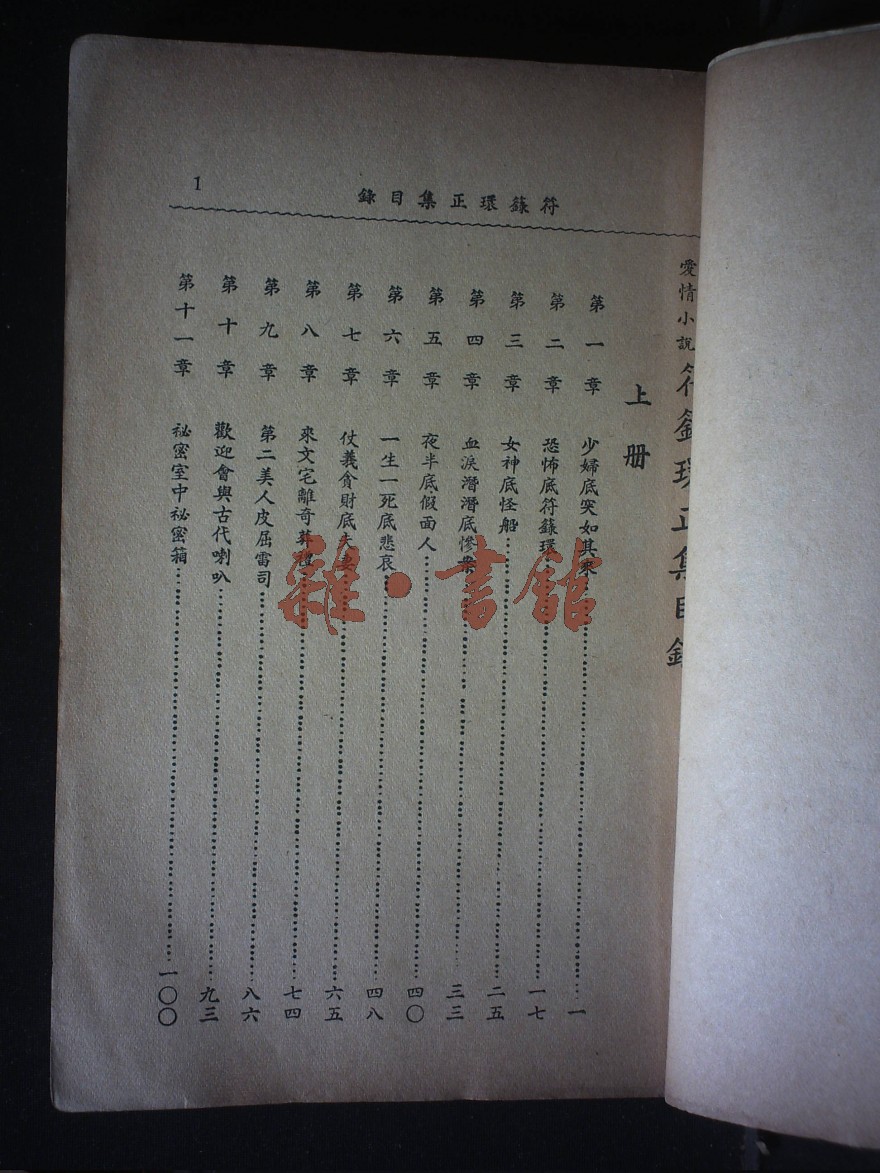 符籙環正集目錄
1
愛情小說 符籙環正集目錄
上冊
第一章 少婦底突如其來 一
第二章 恐怖底符籙環 一七
第三章 女神底怪船 二五
第四章 血淚潛潛底慘案 三三
第五章 夜半底假面人 四〇
第六章 一生一死底悲哀 四八
第七章 仗義貪財底夫妻 六五
第八章 來文宅離奇葬禮 七四
第九章 第二美人皮屈雷司 八六
第十章 歡迎會與古代喇叭 九三
第十一章 祕密室中祕密箱 一〇〇
雜·書館